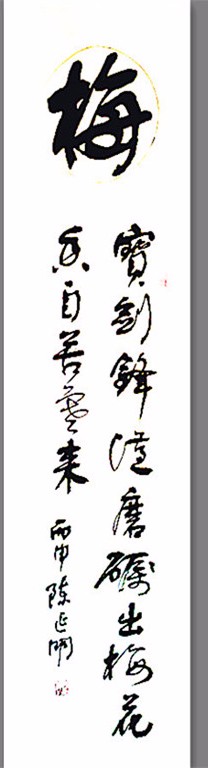 梅
寶劍鋒從磨礪出梅花
香自苦寒來
丙申 陳